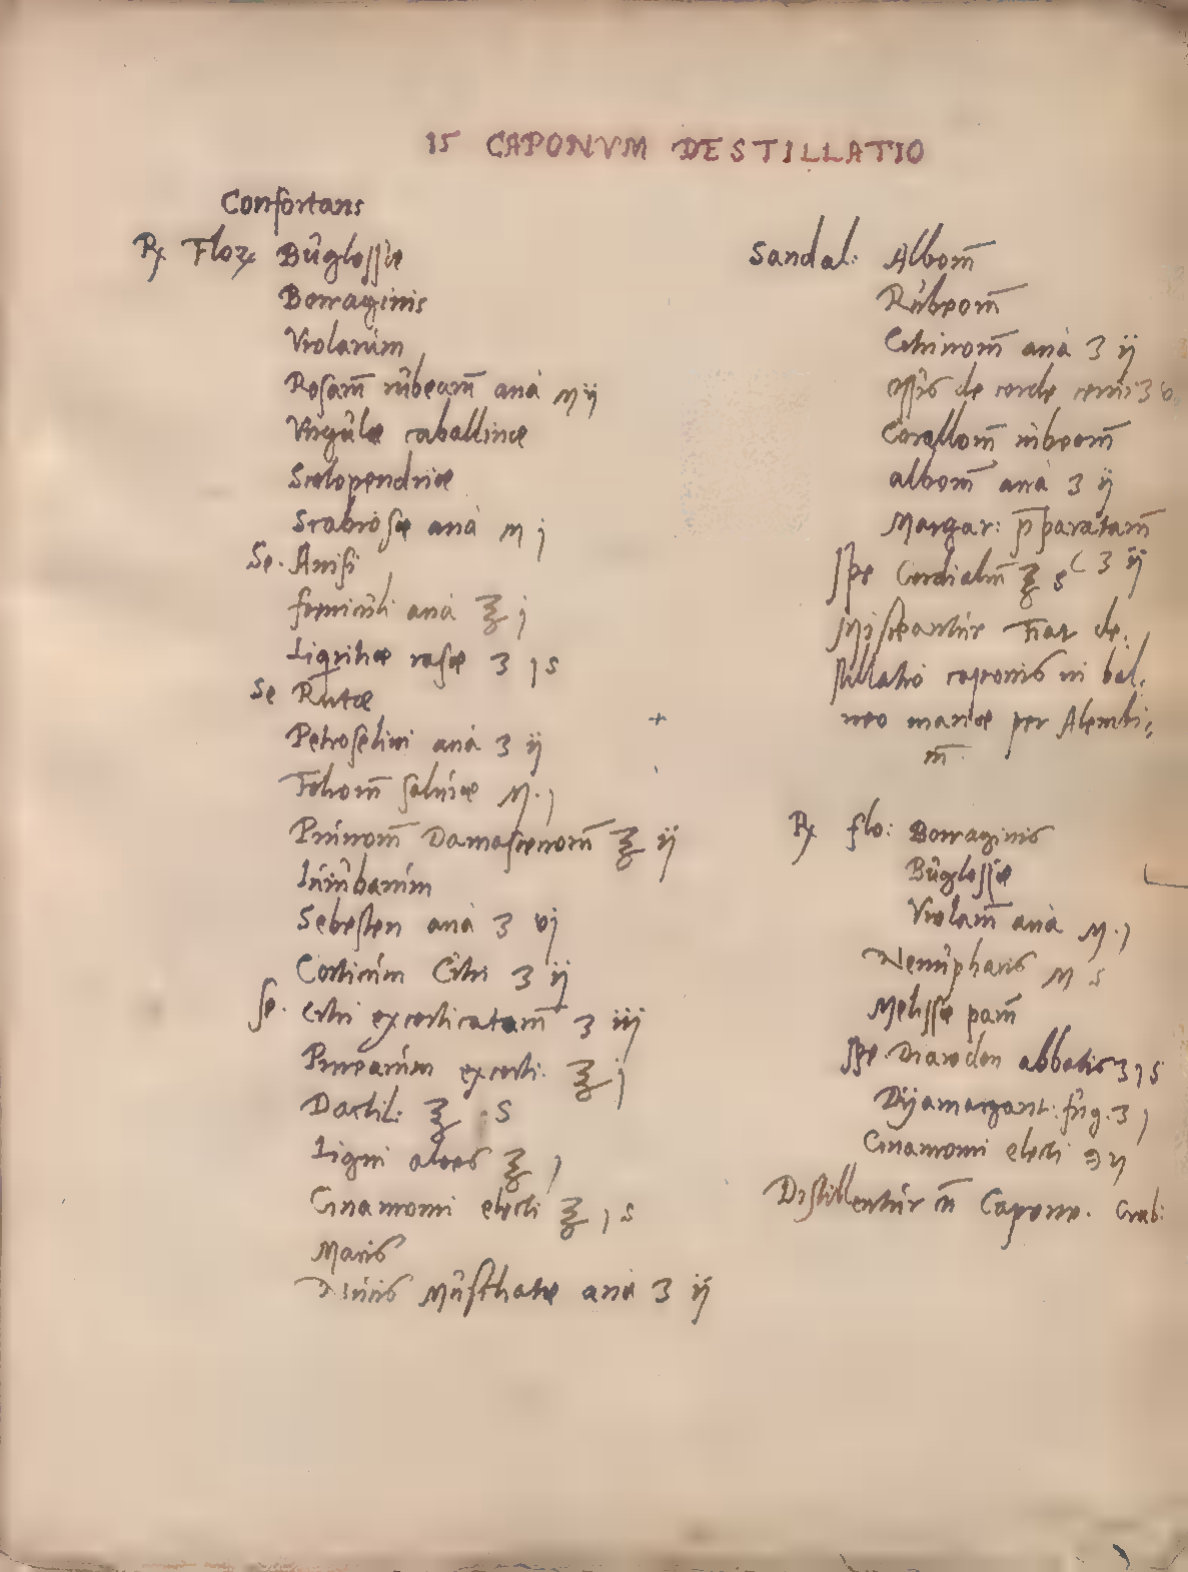 15 CAPONVM DESTILLATIO
Confortans
℞ Floꝝ Bûglossæ
Borraginis
Violarúm
Rosarū̄ rúbearū̄ aná M ij
Vngúlæ caballinæ
Scolopendriæ
Scabiosæ aná M j
Se. Anisi
foeniculi aná ℥ j
Liqritiæ rasæ ʒ j s
Se Rutæ
Petroselini aná ʒ ij
Foliorū̄ salviæ M. j
Prúnorū̄ Damascenorū̄ ℥ ij
Iúiúbarúm
Sebesten aná ʒ vj
Corticúm Citri ʒ ij
Se. Citri excorticatarū̄ ʒ iij
Pinearúm excorti. ℥ j
Dactil. ℥ . s
Ligni aloes ℥ j
Cinamomi electi ℥ j s
Macis
Núcis Múschatæ aná ʒ ij
Sandal: Alborū̄
Rúbeorū̄
Citrinorū̄ aná ʒ ij
ossis de corde cervi ʒ
Corallorū̄ rúbeorū̄
alborū̄ aná ʒ ij
Margar: p̄paratarū̄
spe Cordialiū̄ ℥ s ( ʒ ij
Misceantúr Fiat de:
stillatio caponis in bal:
neo mariæ per Alembi:
cū̄
℞ flo: Borraginis
Búglossæ
Violarū̄ aná M. j
Nenúpharis M s
Melissæ parū̄
spe. Diarodon abbatis ʒ j s
Dyamargant: frig. ʒ j
Cinamomi electi ℈ ij
Distillentúr cū̄ Capone. Crab: